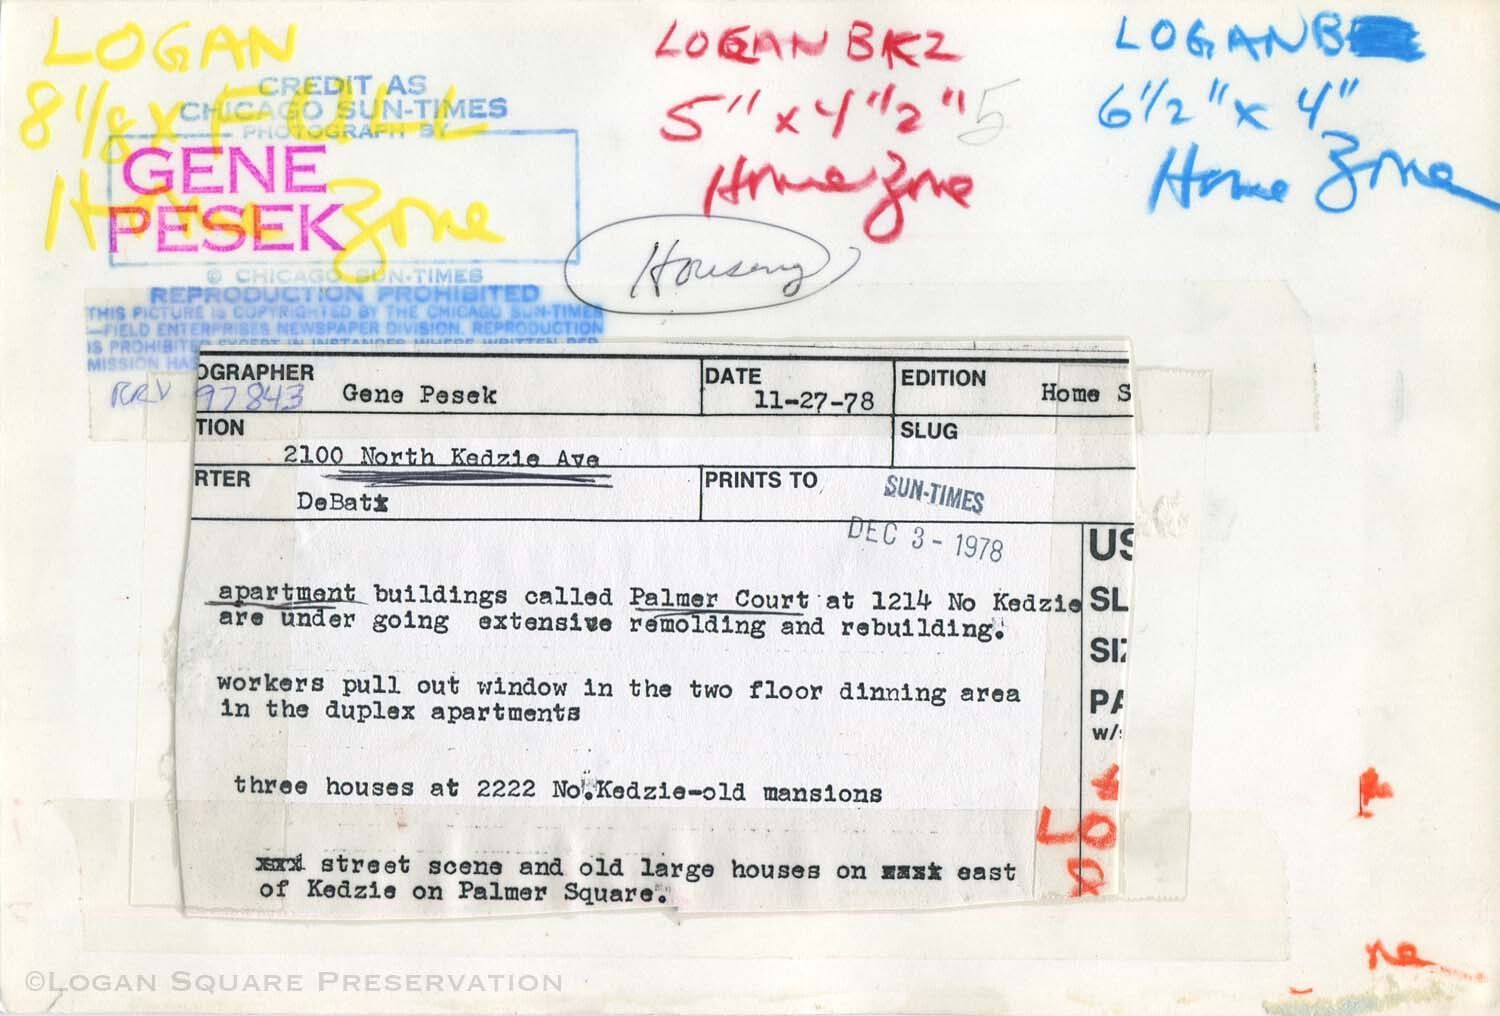 LOGAN
8 1/8 X FULL
Home Zone
CREDIT AS
CHICAGO SUN-TIMES
PHOTOGRAPH BY
GENE
PESEK
© CHICAGO SUN-TIMES
REPRODUCTION PROHIBITED
THIS PICTURE IS COPYRIGHTED BY THE CHICAGO SUN-TIMES
—FIELD ENTERPRISES NEWSPAPER DIVISION. REPRODUCTION
IS PROHIBITED EXCEPT IN INSTANCES WHERE WRITTEN PER
MISSION HAS
LOGAN BKZ
5" x 4 1/2" 5
Home Zone
LOGAN B
6 1/2" x 4"
Home Zone
Housing
OGRAPHER
97843
Gene Pesek
DATE
11-27-78
EDITION
Home S
TION
2100 North Kedzie Ave
SLUG
RTER
DeBat
PRINTS TO
SUN-TIMES
DEC 3 - 1978
apartment buildings called Palmer Court at 1214 No Kedzie
are under going extensive remolding and rebuilding.
workers pull out window in the two floor dinning area
in the duplex apartments
three houses at 2222 No.Kedzie-old mansions
xxxx street scene and old large houses on east
of Kedzie on Palmer Square.
US
SL
SIZ
PA
w/
LO
ne
©LOGAN SQUARE PRESERVATION